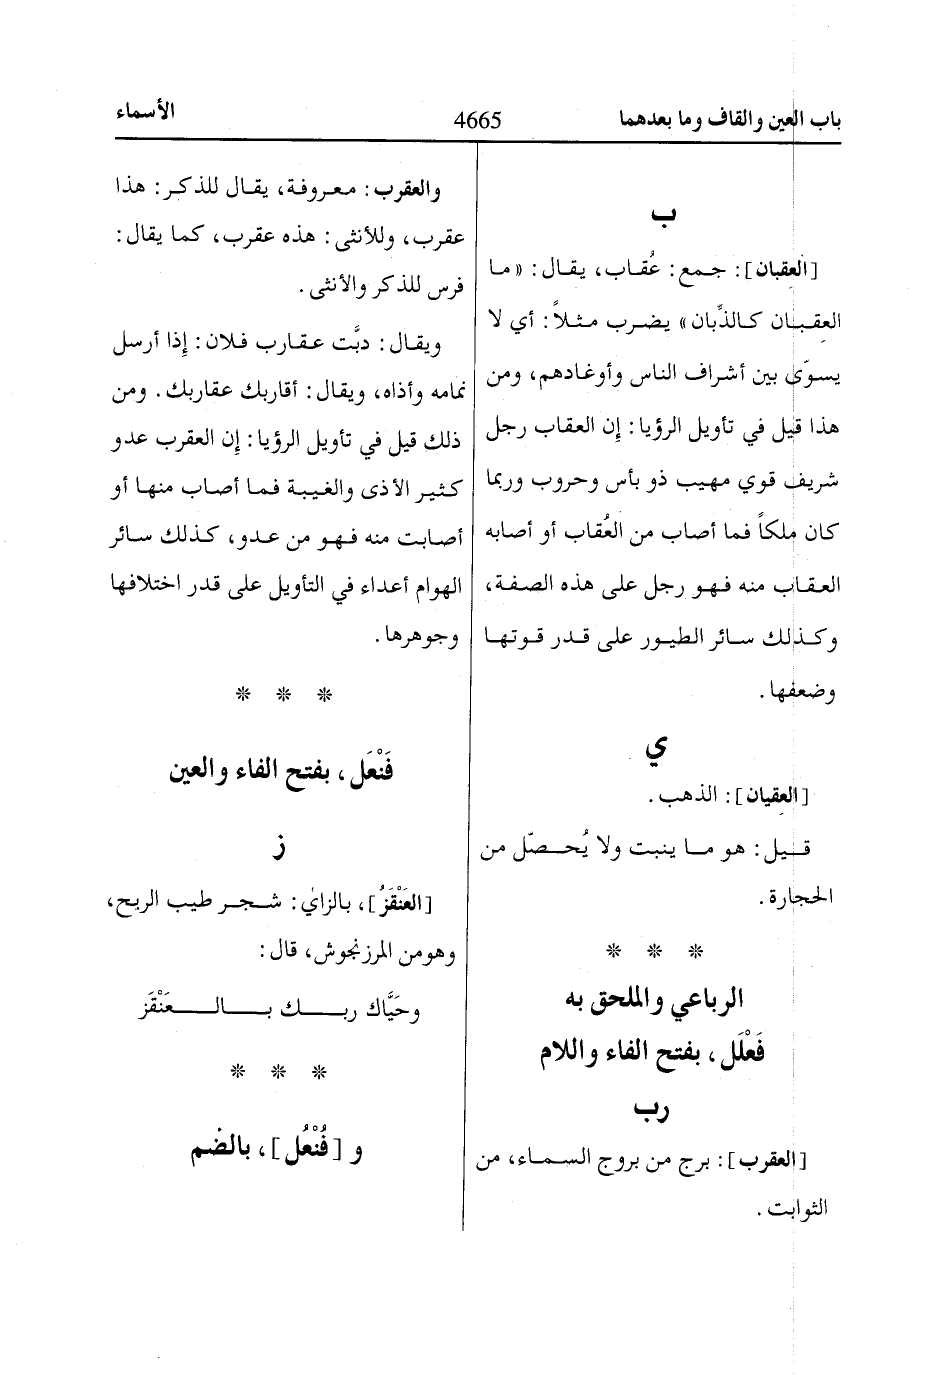 باب العين والقاف وما بعدهما 4665 الأسماء
ب
[العقبان]: جمع: عُقاب، يقال: «ما
العقبان كالذّبان» يضرب مثلاً: أي لا
يسوّى بين أشراف الناس وأوغادهم، ومن
هذا قيل في تأويل الرؤيا: إن العقاب رجل
شريف قوي مهيب ذو بأس وحروب وربما
كان ملكاً فما أصاب من العُقاب أو أصابه
العقاب منه فهو رجل على هذه الصفة،
وكذلك سائر الطيور على قدر قوتها
وضعفها.
ي
[العقيان]: الذهب.
قيل: هو ما ينبت ولا يُحصّل من
الحجارة.
* * *
الرباعي والملحق به
فَعْلَل، بفتح الفاء واللام
رب
[العقرب]: برج من بروج السماء، من
الثوابت.
والعقرب: معروفة، يقال للذكر: هذا
عقرب، وللأنثى: هذه عقرب، كما يقال:
فرس للذكر والأنثى.
ويقال: دبَّت عقارب فلان: إذا أرسل
نمامه وأذاه، ويقال: أقاربك عقاربك. ومن
ذلك قيل في تأويل الرؤيا: إن العقرب عدو
كثير الأذى والغيبة فما أصاب منها أو
أصابت منه فهو من عدو، كذلك سائر
الهوام أعداء في التأويل على قدر اختلافها
وجوهرها.
* * *
فَنْعَل، بفتح الفاء والعين
ز
[العَنْقَزُ]، بالزاي: شجر طيب الريح،
وهو من المرزنجوش، قال:
وحَيَّاك ربك بالعَنْقَز
* * *
و [فُنْعُل]، بالضم